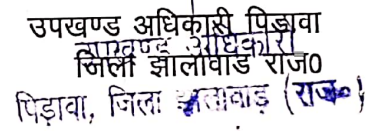 उपखण्ड अधिकारी पिडावा
उपखण्ड अधिकारी
जिला झालावाड राज0
पिड़ावा, जिला झालावाड़ (राज०)